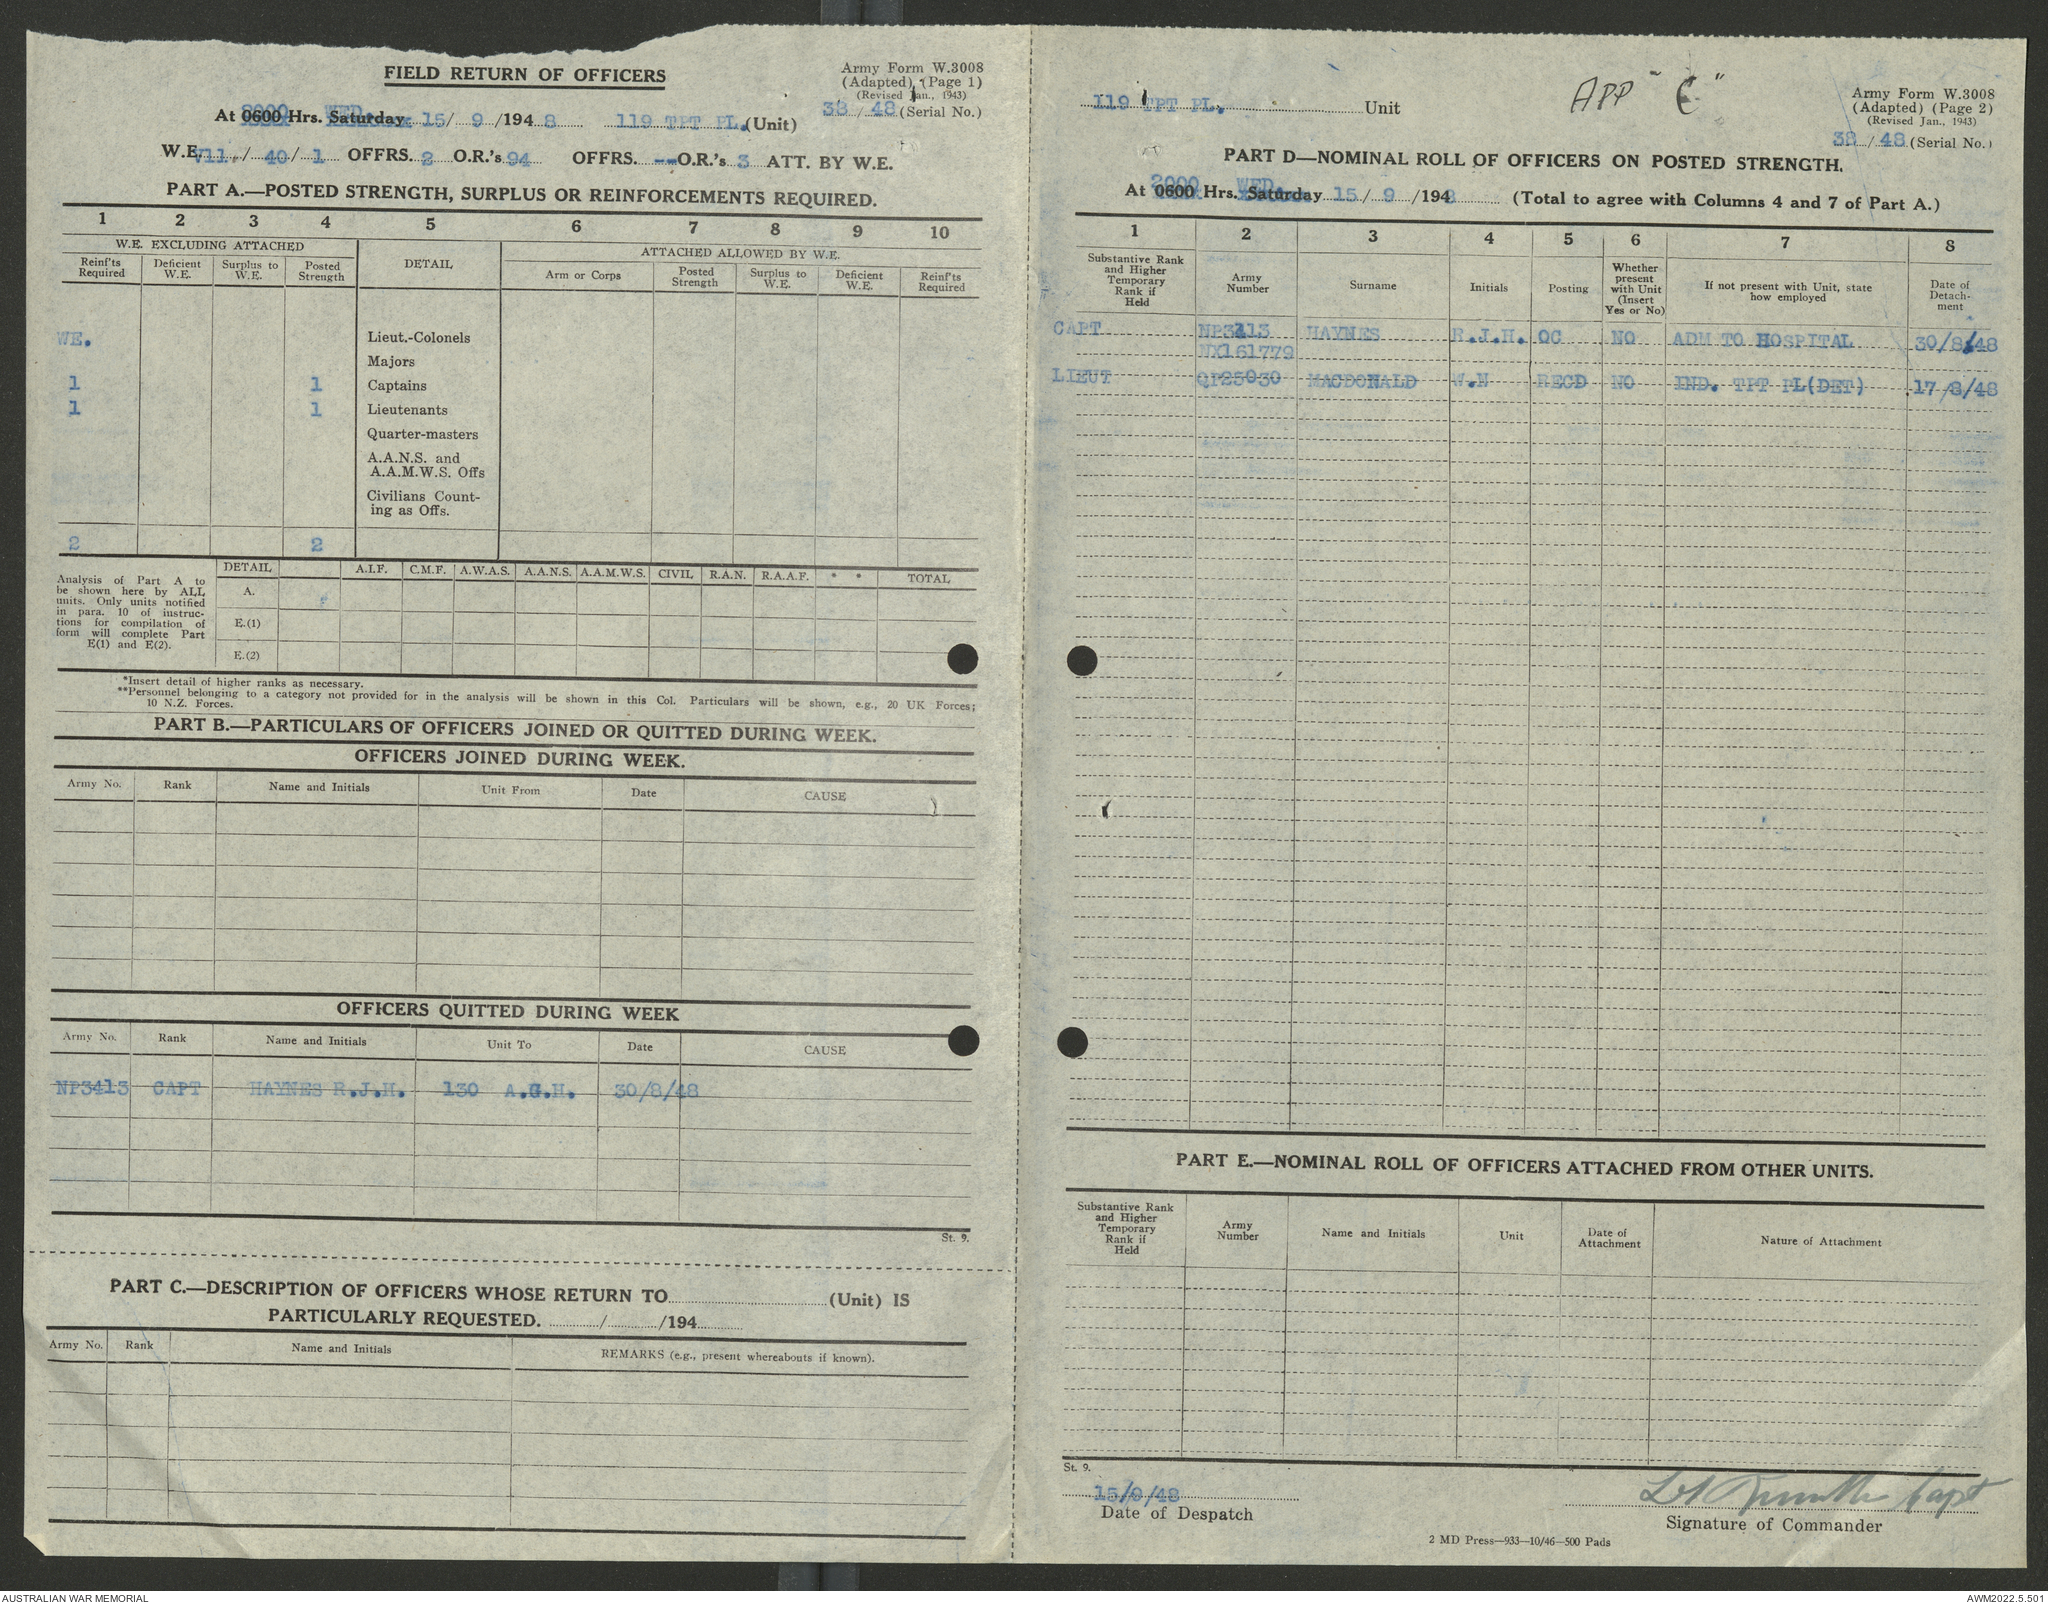 FIELD RETURN OF OFFICERS
Army Form W.3008
(Adapted) (Page 1)
(Revised Jan., 1943)
38/48 (Serial No.)
At 0600 2000 Hrs. Saturday WED. 15/9/1948 119 TPT PL. (Unit)
W.E. V11./40/1 OFFRS. 2 O.R.'s 94 OFFRS. -- O.R.'s 3 ATT. BY W.E.
PART A.—POSTED STRENGTH, SURPLUS OR REINFORCEMENTS REQUIRED.
1 2 3 4 5 6 7 8 9 10
W.E. EXCLUDING ATTACHED
DETAIL
ATTACHED ALLOWED BY W.E.
Reinf'ts Required
Deficient W.E.
Surplus to W.E.
Posted Strength
Arm or Corps
Posted Strength
Surplus to W.E.
Deficient W.E.
Reinf'ts Required
WE. Lieut.-Colonels
Majors
1 1 Captains
1 1 Lieutenants
Quarter-masters
A.A.N.S. and
A.A.M.W.S. Offs
Civilians Count-
ing as Offs.
2 2
Analysis of Part A to
be shown here by ALL
units. Only units notified
in para. 10 of instruc-
tions for compilation of
form will complete Part
E(1) and E(2).
DETAIL A.I.F. C.M.F. A.W.A.S. A.A.N.S. A.A.M.W.S. CIVIL R.A.N. R.A.A.F. * * TOTAL
A.
E.(1)
E.(2)
*Insert detail of higher ranks as necessary.
**Personnel belonging to a category not provided for in the analysis will be shown in this Col. Particulars will be shown, e.g., 20 UK Forces;
10 N.Z. Forces.
PART B.—PARTICULARS OF OFFICERS JOINED OR QUITTED DURING WEEK.
OFFICERS JOINED DURING WEEK.
Army No. Rank Name and Initials Unit From Date CAUSE
OFFICERS QUITTED DURING WEEK
Army No. Rank Name and Initials Unit To Date CAUSE
NP3413 CAPT HAYNES R.J.H. 130 A.G.H. 30/8/48
St. 9.
PART C.—DESCRIPTION OF OFFICERS WHOSE RETURN TO (Unit) IS
PARTICULARLY REQUESTED. / /194
Army No. Rank Name and Initials REMARKS (e.g., present whereabouts if known).
119 TPT PL. Unit
APP "C"
Army Form W.3008
(Adapted) (Page 2)
(Revised Jan., 1943)
38/48 (Serial No.)
PART D—NOMINAL ROLL OF OFFICERS ON POSTED STRENGTH.
At 0600 2000 Hrs. Saturday WED. 15/9/1948 (Total to agree with Columns 4 and 7 of Part A.)
1 2 3 4 5 6 7 8
Substantive Rank and Higher Temporary Rank if Held
Army Number
Surname
Initials
Posting
Whether present with Unit (Insert Yes or No)
If not present with Unit, state how employed
Date of Detach-ment
CAPT NP3413 HAYNES R.J.H. OC NO ADM TO HOSPITAL 30/8/48
NX161779
LIEUT QP25030 MACDONALD W.N RECD NO IND. TPT PL(DET) 17/8/48
PART E.—NOMINAL ROLL OF OFFICERS ATTACHED FROM OTHER UNITS.
Substantive Rank and Higher Temporary Rank if Held
Army Number
Name and Initials
Unit
Date of Attachment
Nature of Attachment
St. 9.
15/9/48
Date of Despatch
Capt
Signature of Commander
2 MD Press—933—10/46—500 Pads
AUSTRALIAN WAR MEMORIAL
AWM2022.5.501